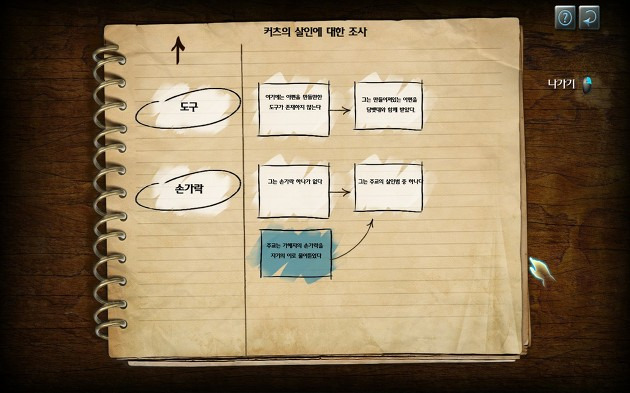 커츠의 살인에 대한 조사
나가기
도구
여기에는 아편을 만들만한
도구가 존재하지 않는다
그는 만들어져있는 아편을
담뱃대와 함께 받았다.
손가락
그는 손가락 하나가 없다
그는 주교의 살인범 중 하나다
주교는 가해자의 손가락을
자기의 이로 물어뜯었다